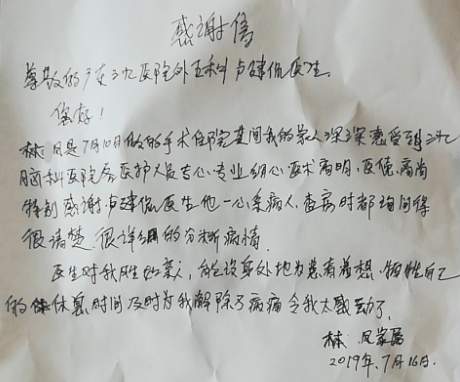 感谢信
尊敬的广东三九医院外五科卢建侃医生。
您好！
林凤是7月10日做的手术住院其间我的家人深深感受到三九
脑科医院的医护人员专心、专业、细心、医术高明、医德高尚
特别感谢卢建侃医生他一心系病人，查房时都询问得
很清楚很详细的分析病情。
医生对我胜如亲人，能设身处地为患者着想，牺牲自己
的休息时间及时为我解除了病痛令我太感动了。
林凤家属
2019年7月16日.